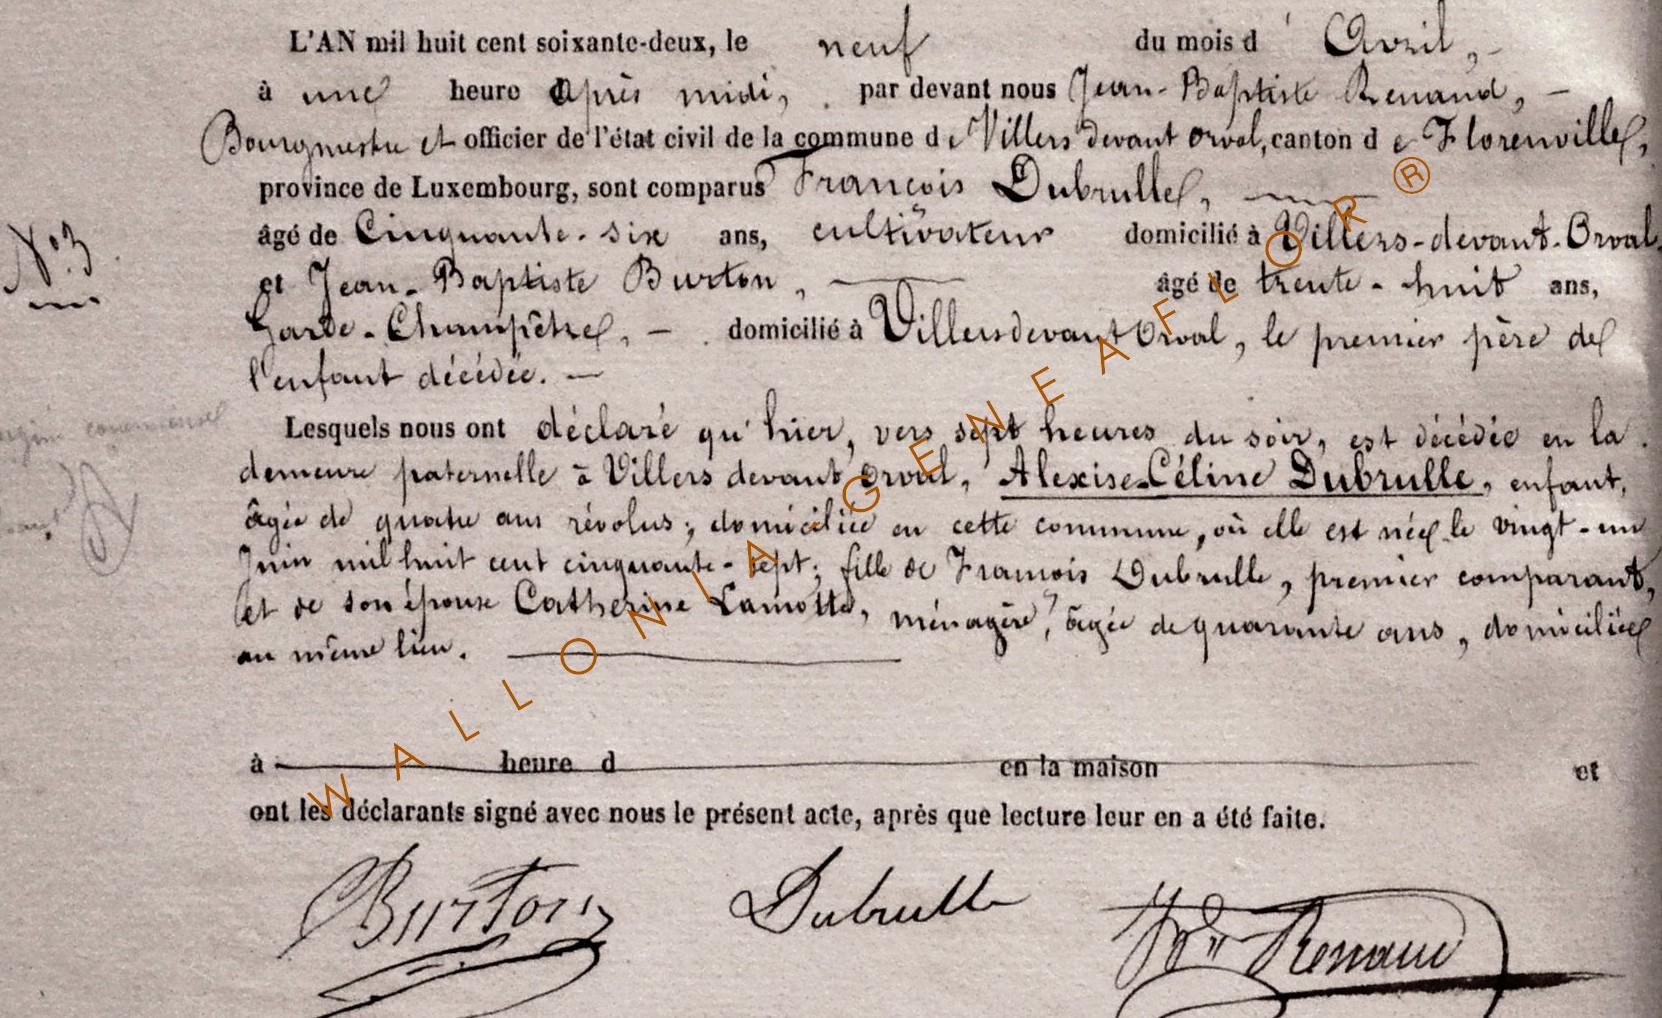 L'AN mil huit cent soixante-deux, le neuf du mois d' Avril,
à une heure d'après midi, par devant nous Jean-Baptiste Renaud,
Bourgmestre et officier de l'état civil de la commune de Villers devant Orval, canton de Florenville,
province de Luxembourg, sont comparus François Dubrulle,
âgé de Cinquante-six ans, cultivateur domicilié à Villers-devant-Orval,
N° 3
et Jean-Baptiste Burton, âgé de trente-huit ans,
Garde-Champêtre, domicilié à Villers devant Orval, le premier père de
l'enfant décédée.
Lesquels nous ont déclaré qu'hier, vers sept heures du soir, est décédée en la
demeure paternelle à Villers devant Orval, Alexise-Céline Dubrulle, enfant,
âgée de quatre ans révolus; domiciliée en cette commune, où elle est née le vingt-un
Juin mil huit cent cinquante-sept; fille de François Dubrulle, premier comparant,
et de son épouse Catherine Lamotte, ménagère, âgée de quarante ans, domiciliée
au même lieu.
à heure d en la maison et
ont les déclarants signé avec nous le présent acte, après que lecture leur en a été faite.
Burton Dubrulle Renaud
WALLONIA-GENEAFLOR®